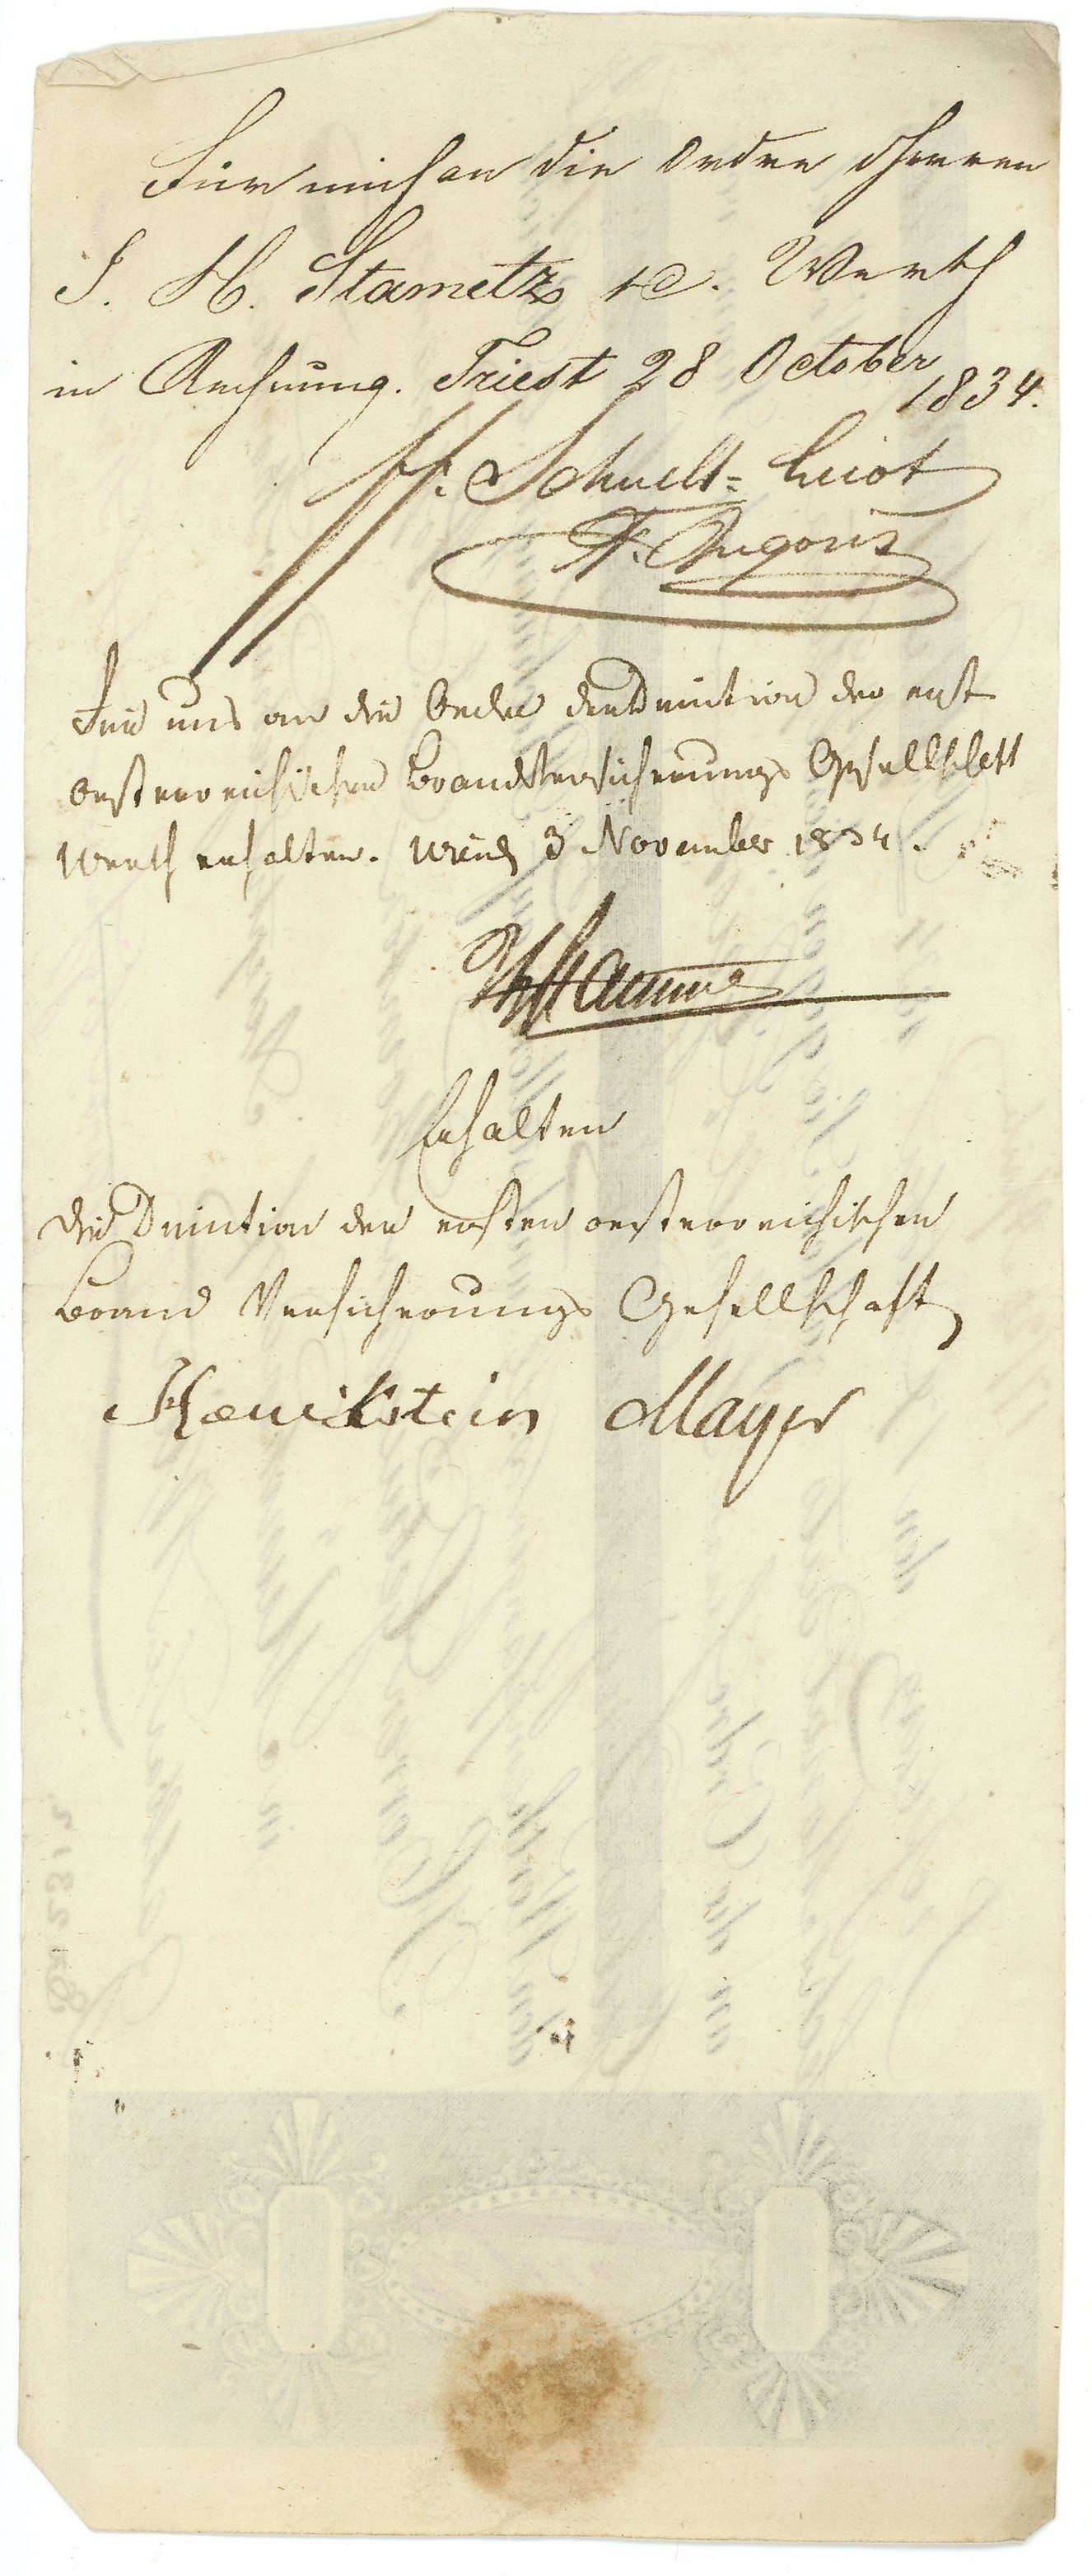 Für mich an die Ordre Herren
J. H. Stametz &C. Werth
in Rechnung. Triest 28 October
1834.
Schnell=
F.
Für uns an die Ordre der Direction der erst
oesterreichischen Brandversicherungs Gesellschaft
Werth erhalten. Wien 3 November 1834.
Erhalten
Die Direction der ersten oesterreichischen
Brand Versicherungs Gesellschaft
Henikstein Mayer